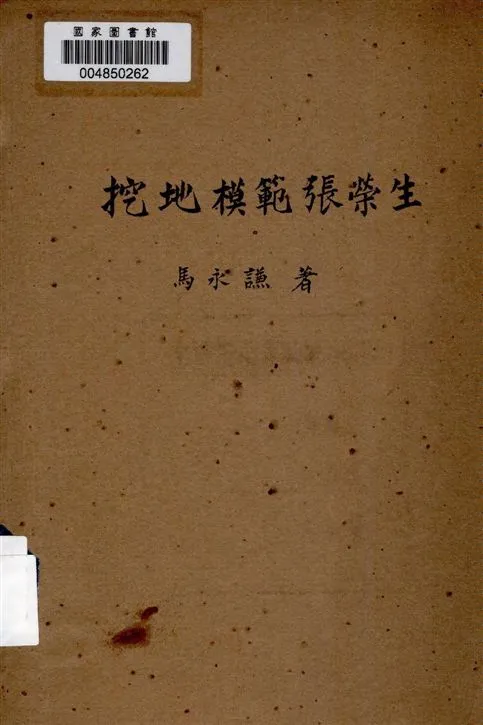 國家圖書館
004850262
挖地模範張榮生
馬永謙 著